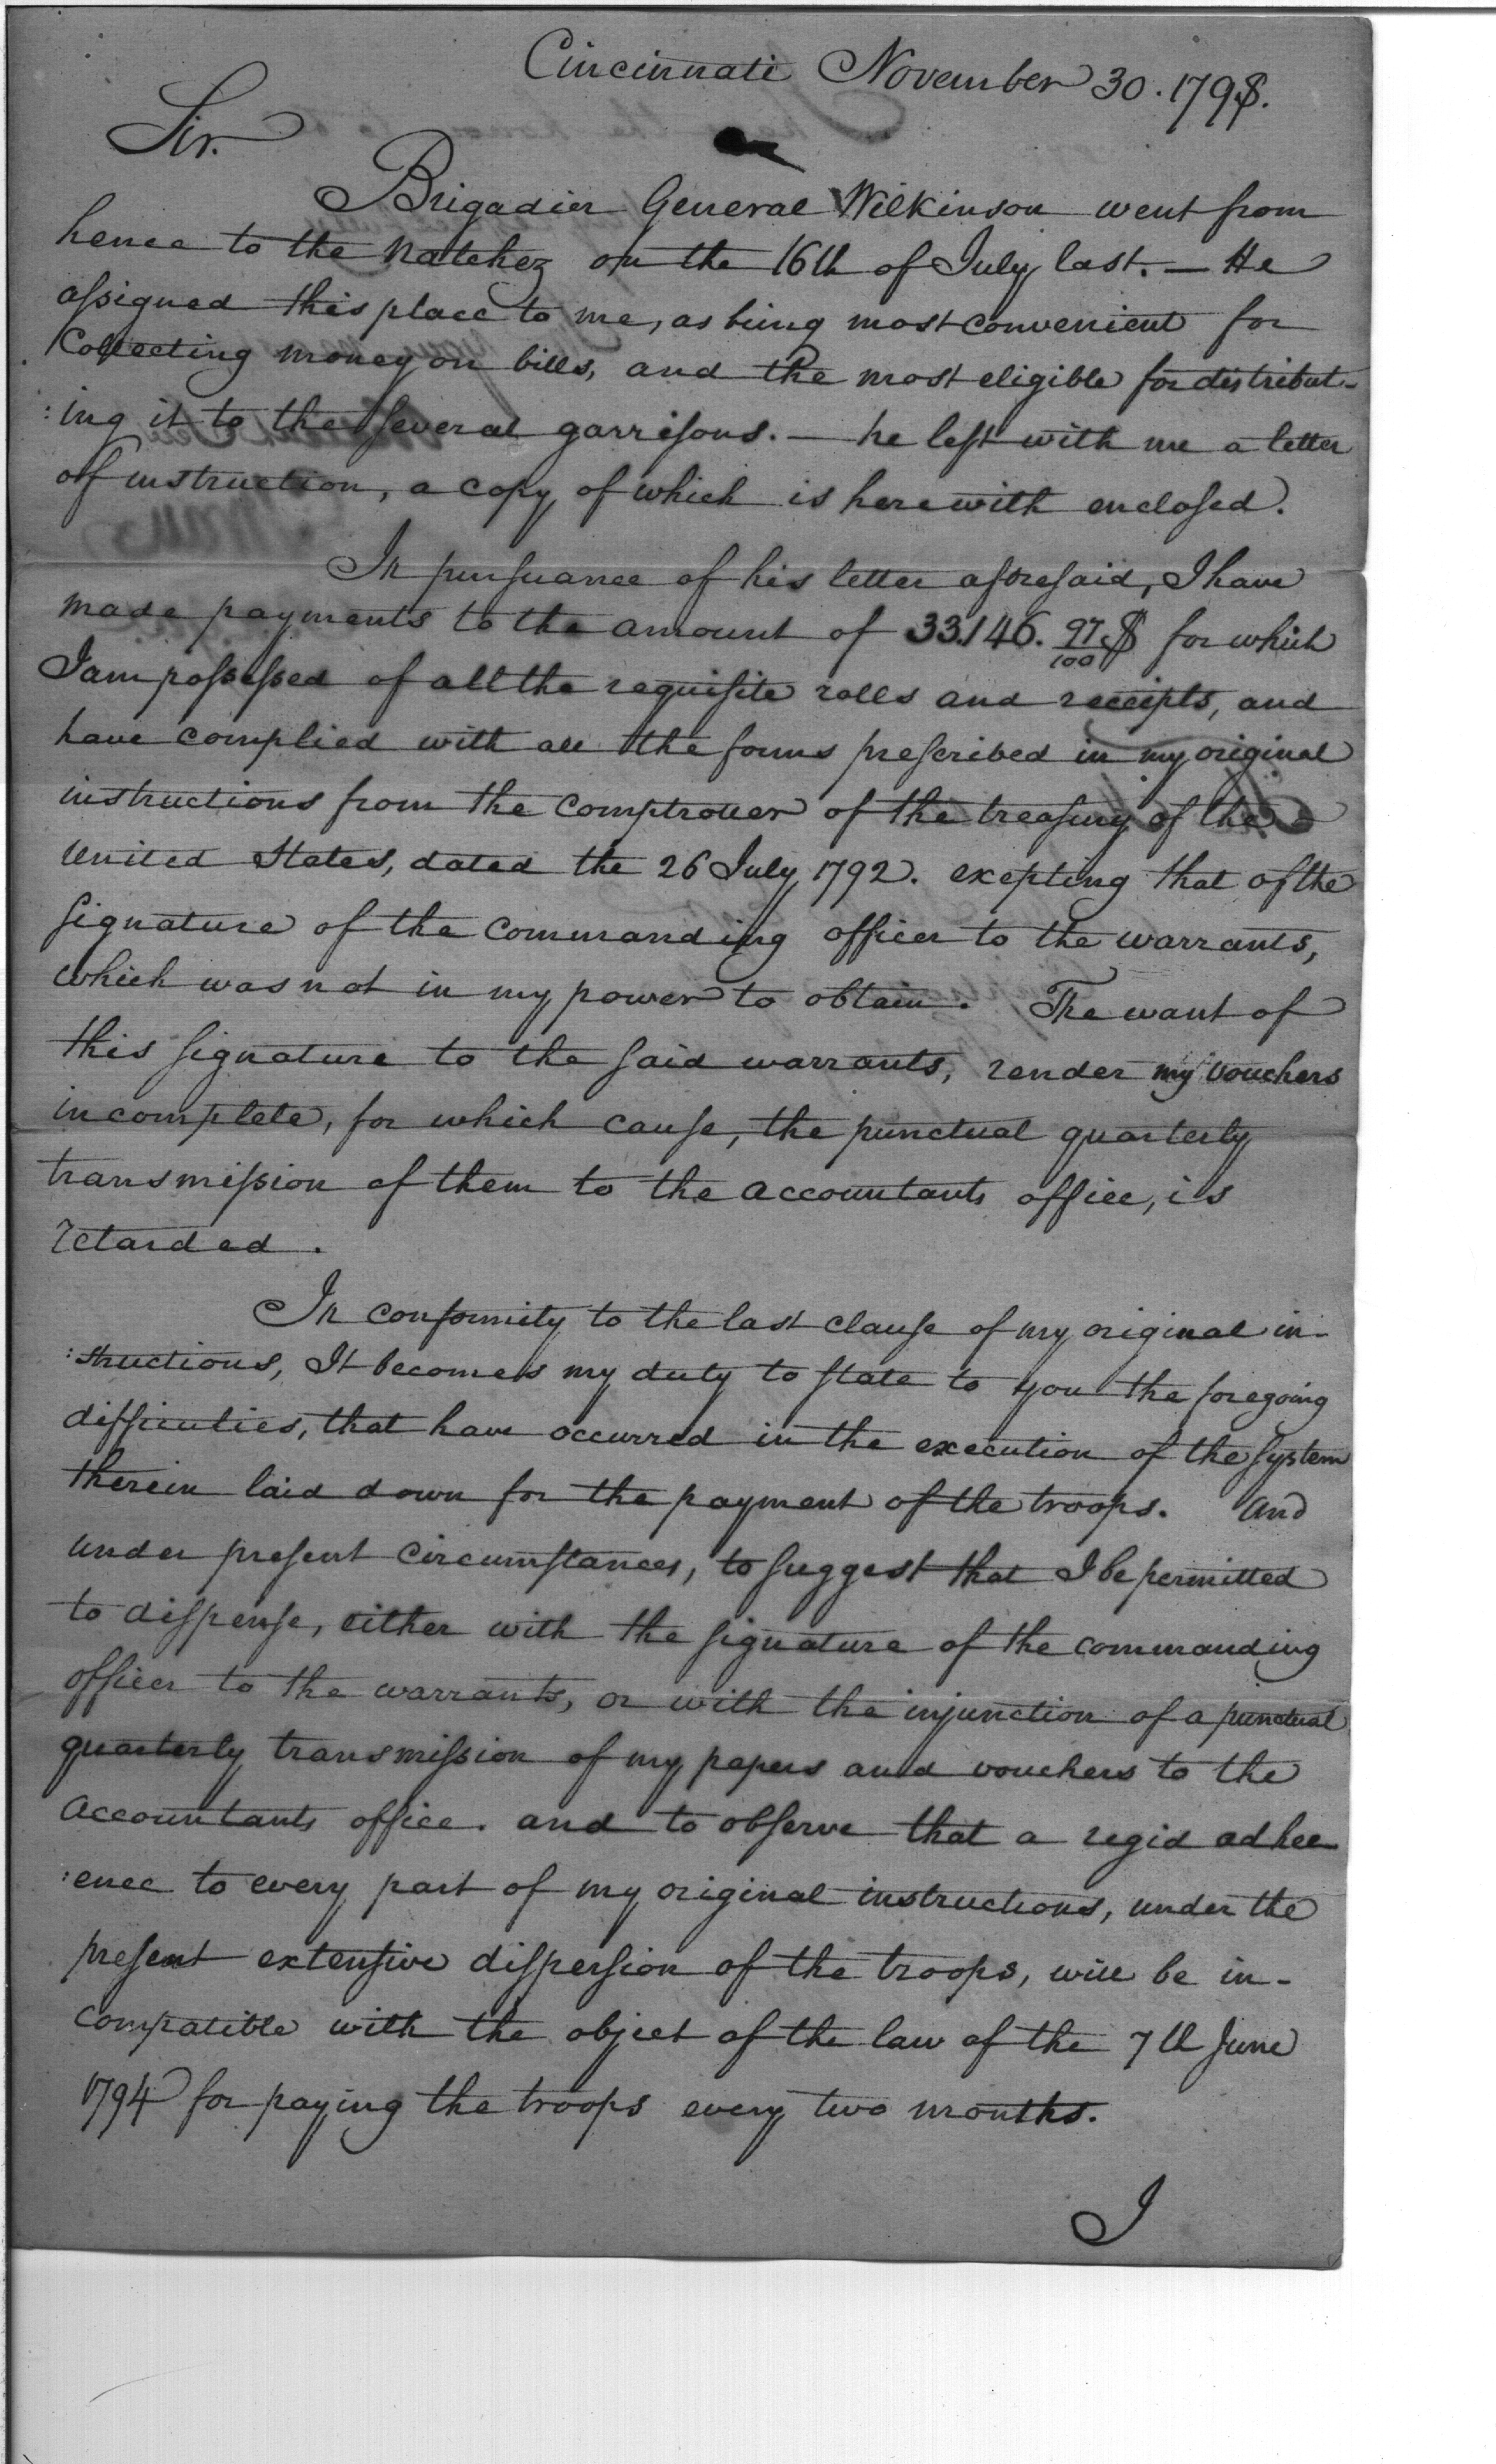 Cincinnati November 30. 1798.
Sir.
Brigadier General Wilkinson went from
hence to the Natchez on the 16th of July last. — He
assigned this place to me, as being most convenient for
Collecting money on bills, and the most eligible for distribut-
:ing it to the several garrisons. — he left with me a letter
of instruction, a copy of which is herewith enclosed.
In pursuance of his letter aforesaid, I have
made payments to the amount of 33.146. 97/100 $ for which
I am possessed of all the requisite rolls and receipts, and
have complied with all the forms prescribed in my original
instructions from the Comptroller of the treasury of the
United States, dated the 26 July 1792. exepting that of the
signature of the Commanding officer to the warrants,
which was not in my power to obtain. The want of
this signature to the said warrants, render my vouchers
incomplete, for which cause, the punctual quarterly
transmission of them to the accountants office, is
retarded.
In conformity to the last clause of my original in-
:structions, It becomes my duty to state to you the foregoing
difficulties, that have occurred in the execution of the system
therein laid down for the payment of the troops. And
under present circumstances, to suggest that I be permitted
to dispense, either with the signature of the commanding
officer to the warrants, or with the injunction of a punctual
quarterly transmission of my papers and vouchers to the
accountants office. and to observe that a regid adher
:ence to every part of my original instructions, under the
present extensive dispersion of the troops, will be in-
compatible with the object of the law of the 7th June
1794 for paying the troops every two months.
I